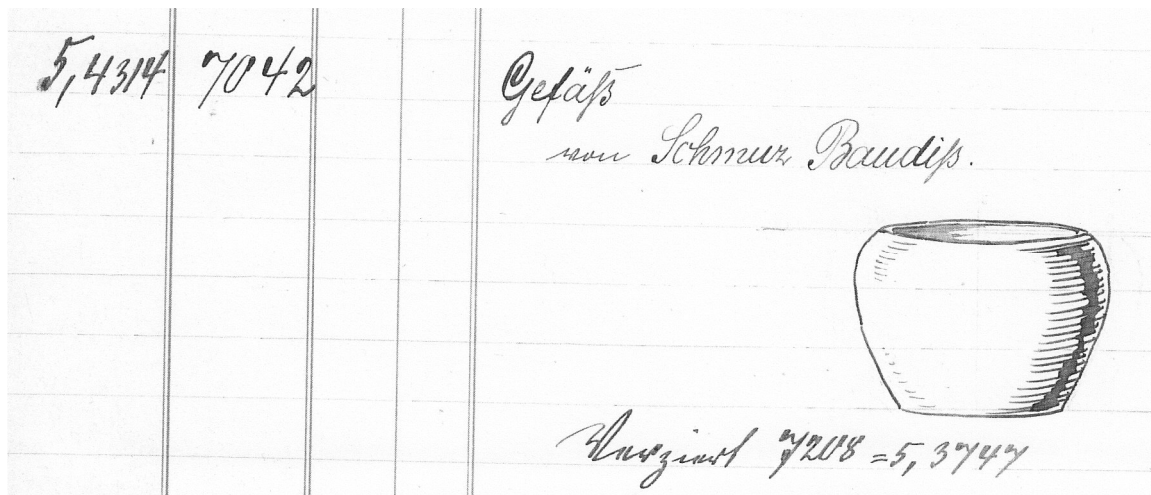 5,4314 7042 Gefäß
von Schmuz Baudiß.
Verziert 7208 = 5,3747